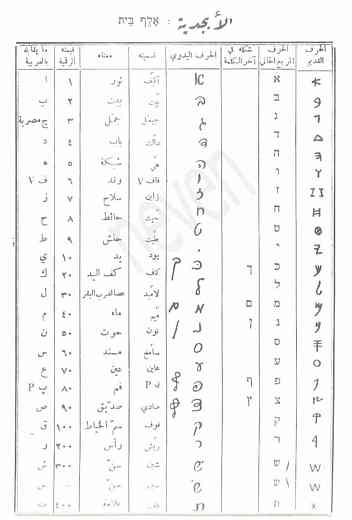 الأبجدية : אָלֶף בֵּית
الحرف القديم الحرف المربع الحالي شكله في آخر الكلمة الحرف اليدوي تسميته معناه قيمته الرقمية ما يقابله بالعربية
א ألف ثور ١ ا
ב بيت بيت ٢ ب
ג جيمل جمل ٣ ج مصرية
ד دالت باب ٤ د
ה هي شبكة ٥ ه
ו ڤاڤ V وتد ٦ ڤ V
ז زاين سلاح ٧ ز
ח حيت حائط ٨ ح
ט طيت ٩ ط
י يود يد ١٠ ي
כ ך كف كف اليد ٢٠ ك
ל لامد ٣٠ ل
מ ם ميم ماء ٤٠ م
נ ן نون حوت ٥٠ ن
ס سامخ مسند ٦٠ س
ע عاين عين ٧٠ ع
פ ף P فم ٨٠ پ P
צ ץ صادي ٩٠ ص
ק قوف سمّ الخياط ١٠٠ ق
ר ريش رأس ٢٠٠ ر
ש شين سنّ ٣٠٠ ش
ש سين سنّ س
ת علامة ٤٠٠ ت
neven